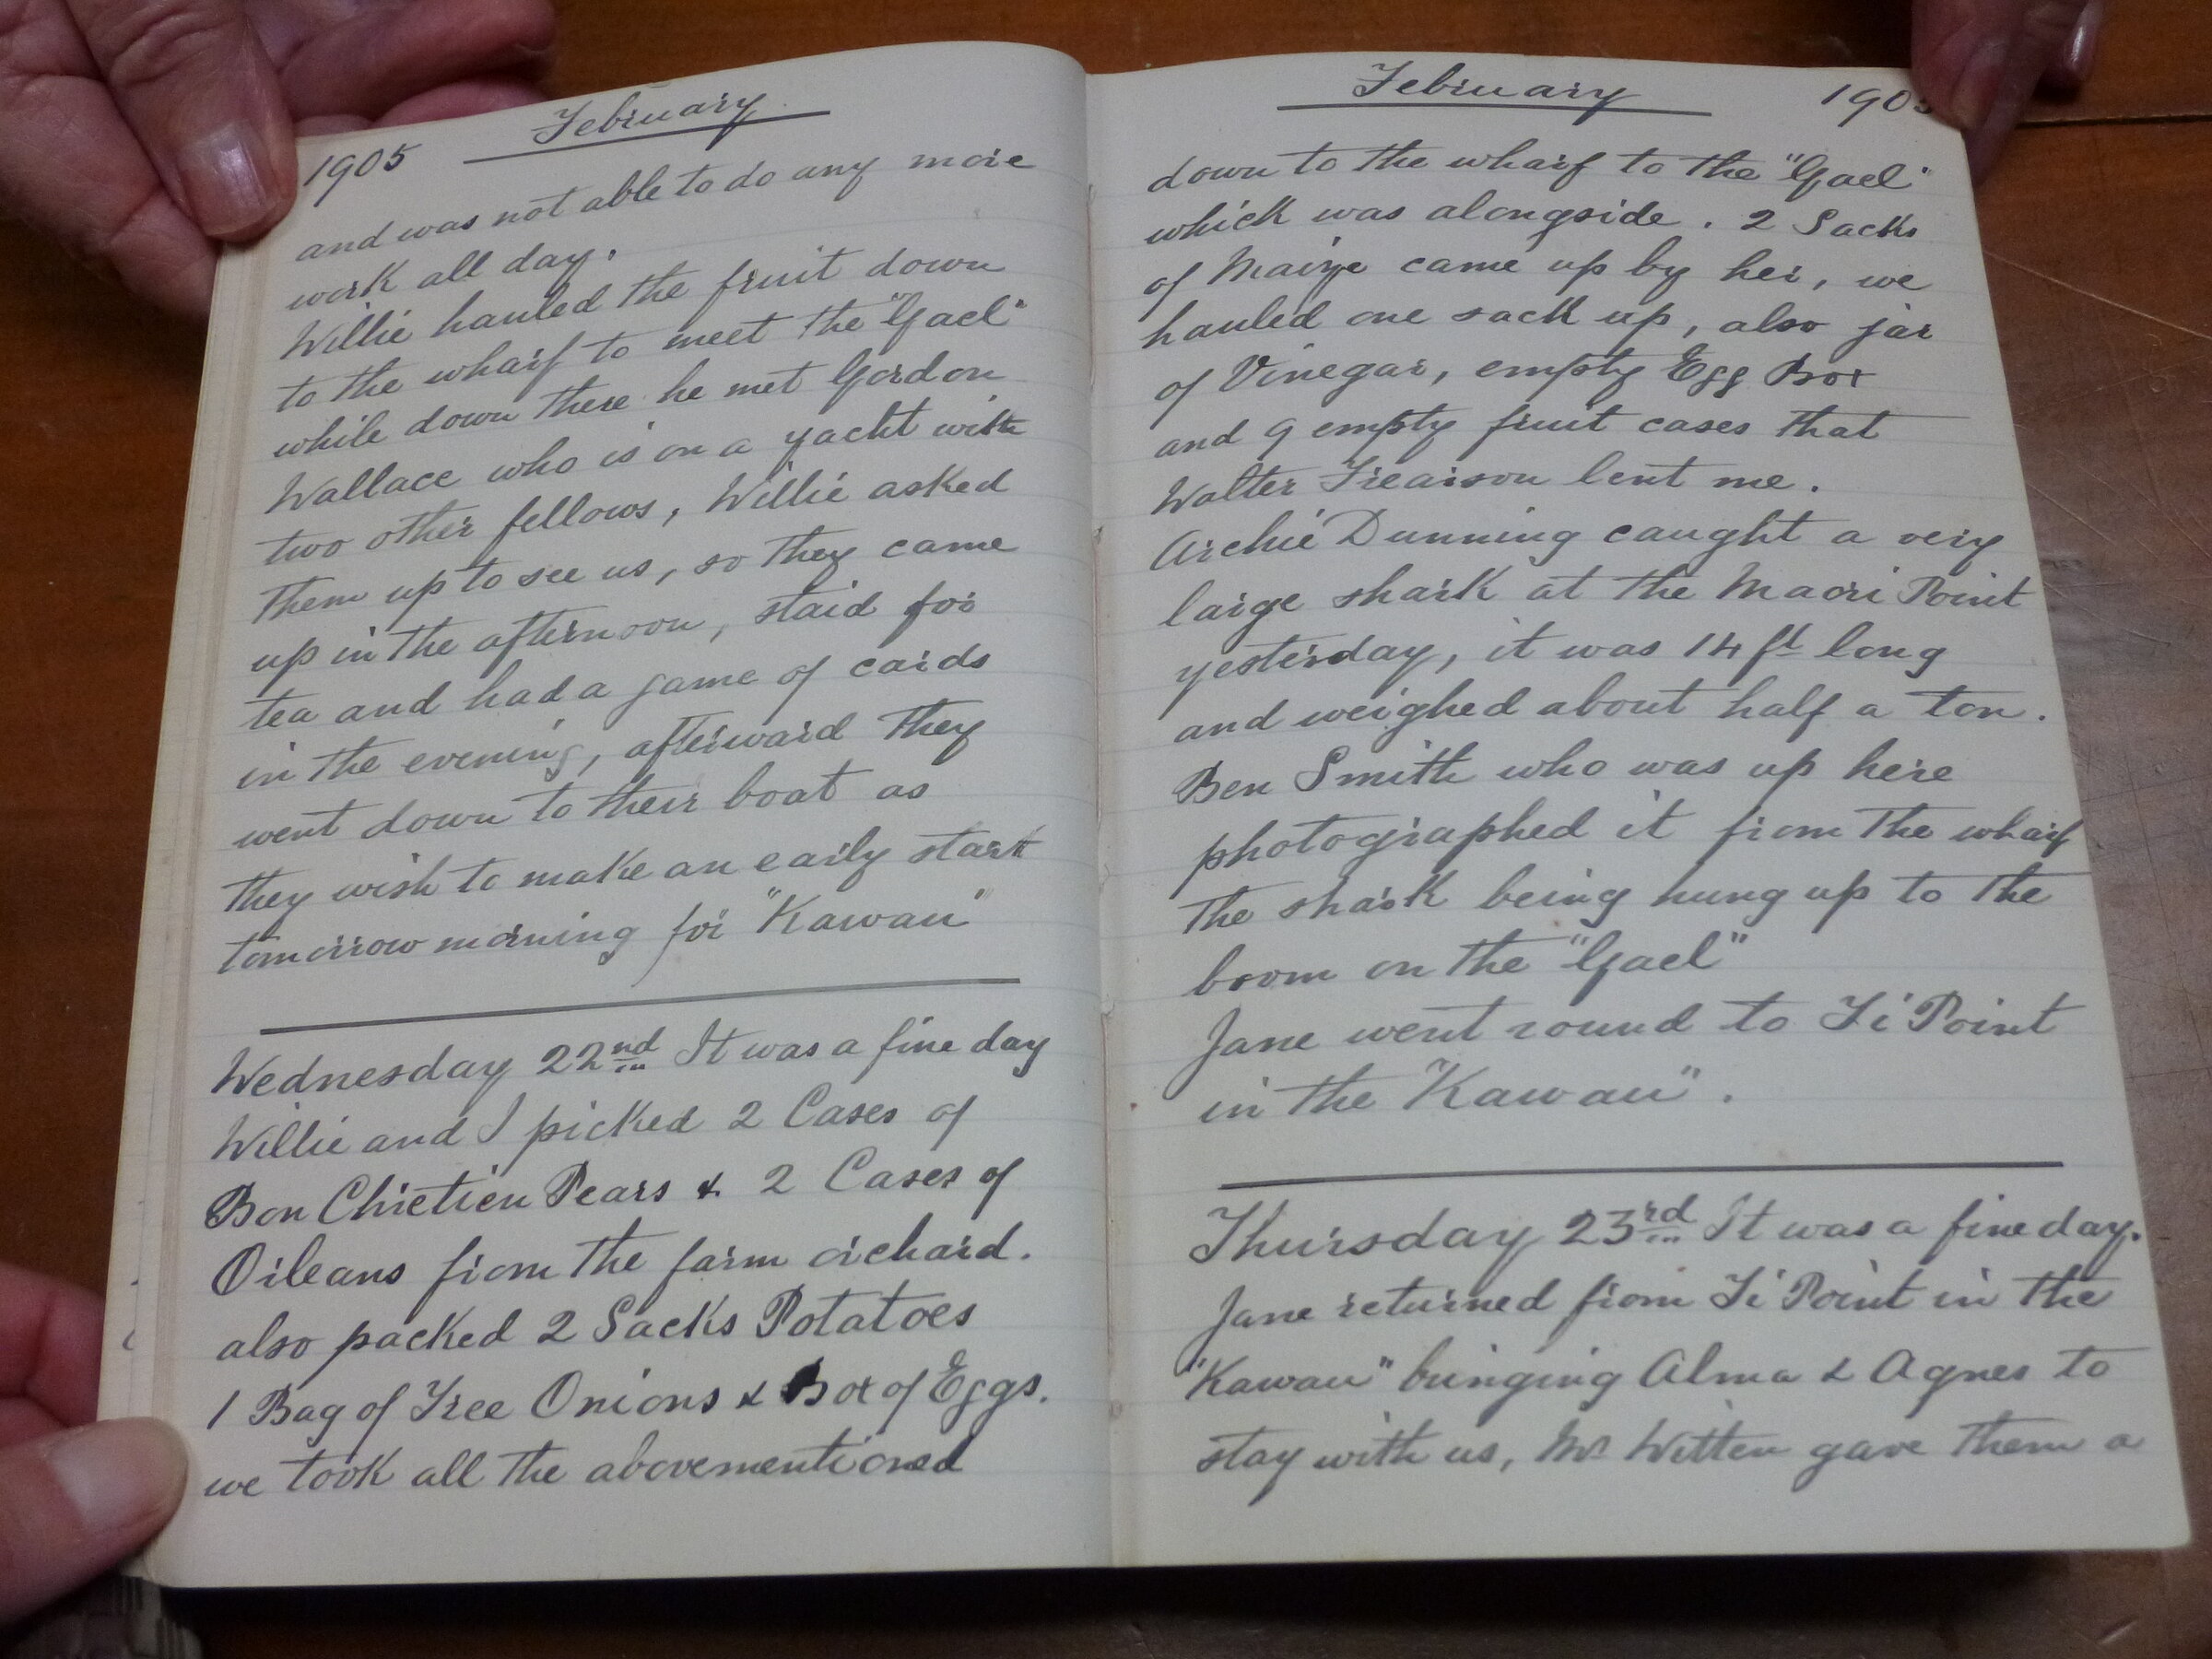 February
1905
and was not able to do any more
work all day.
Willie hauled the fruit down
to the wharf to meet the "Gael"
while down there he met Gordon
Wallace who is on a yacht with
two other fellows, Willie asked
them up to see us, so they came
up in the afternoon, staid for
tea and had a game of cards
in the evening, afterward they
went down to their boat as
they wish to make an early start
tomorrow morning for "Kawau"
Wednesday 22nd It was a fine day
Willie and I picked 2 Cases of
Bon Chretien Pears & 2 Cases of
Orleans from the farm orchard.
also packed 2 Sacks Potatoes
1 Bag of Tree Onions & Box of Eggs.
we took all the abovementioned
February
1905
down to the wharf to the "Gael"
which was alongside. 2 Sacks
of Maize came up by her, we
hauled one sack up, also jar
of Vinegar, empty Egg Box
and 9 empty fruit cases that
Walter Frearson lent me.
Archie Dunning caught a very
large shark at the Maori Point
yesterday, it was 14 ft long
and weighed about half a ton.
Ben Smith who was up here
photographed it from the wharf
the shark being hung up to the
boom on the "Gael"
Jane went round to Ti Point
in the "Kawau".
Thursday 23rd It was a fine day.
Jane returned from Ti Point in the
"Kawau" bringing Alma & Agnes to
stay with us, Mr Witten gave them a